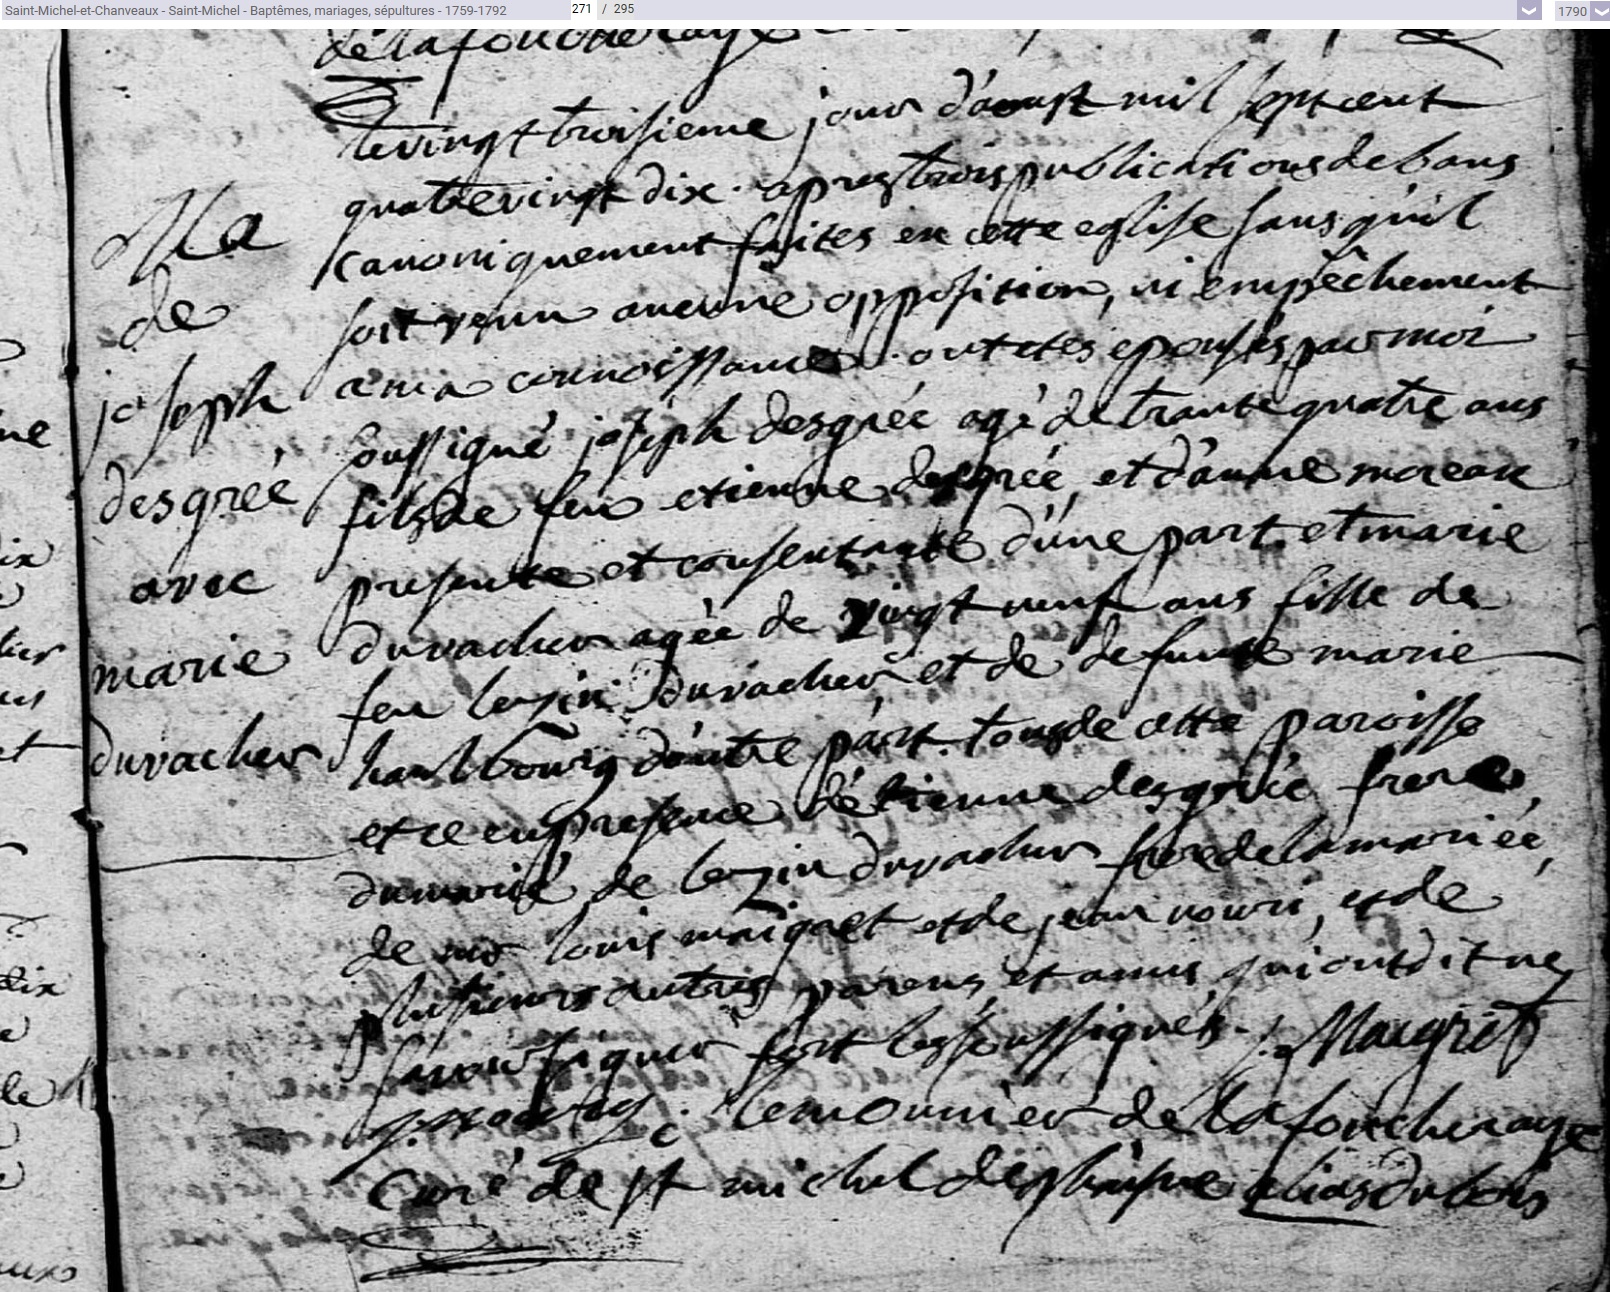 Saint-Michel-et-Chanveaux - Saint-Michel - Baptêmes, mariages, sépultures - 1759-1792
271 / 295
1790
delafoucheraye
Ma
de
joseph
desgrée
avec
marie
duvacher
le vingt troisieme jour d'aoust mil sept cent
quatrevingt dix. apres trois publications de bans
canoniquement faites en cette eglise sans qu'il
soit venu aucune opposition, ni empêchement
a ma connoissance. ont etes epousés par moi
soussigné joseph desgrée agé de trante quatre ans
fils de feu etienne desgrée, et d'anne moreau
presente et consentante d'une part. et marie
duvacher agée de vingt neuf ans fille de
feu lezin duvacher et de defunte marie
haulbourg d'autre part. tous de cette paroisse
et ce en presence d'étienne desgrée frere
du marié de lezin duvacher frere de la mariée,
de louis maigret et de jean nouri, et de
plusieurs autres parens et amis qui ont dit ne
savoir signer fort les soussignés. Maigret
lemounier de lafoucheraye
curé de st michel
alias du bois